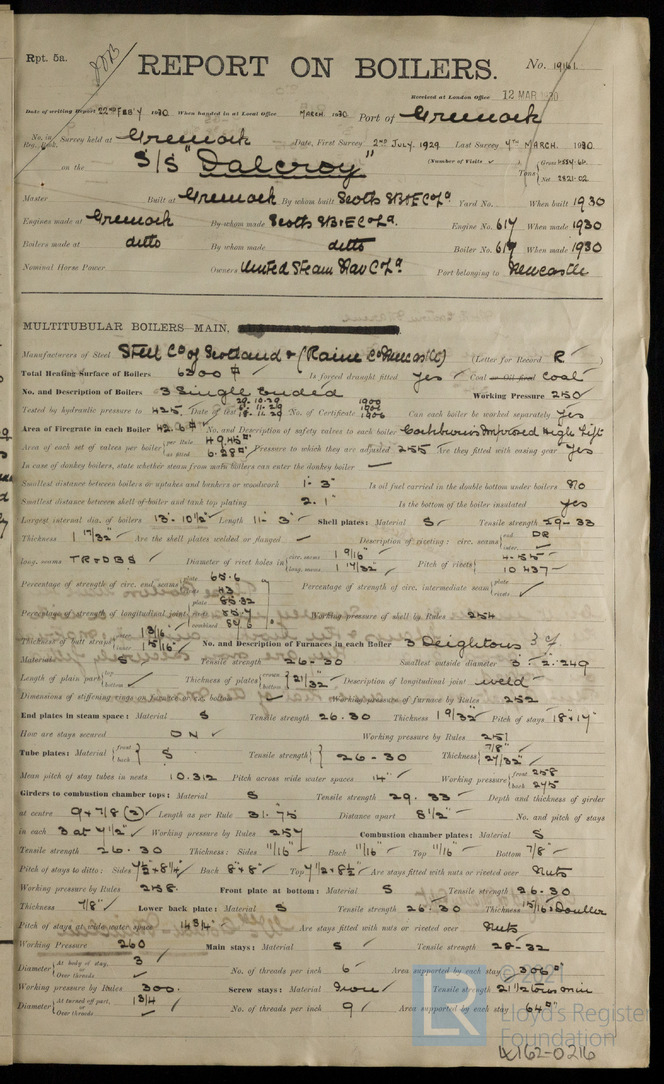 Rpt. 5a.
REPORT ON BOILERS.
No. 19161.
Received at London Office 12 MAR 1930
Date of writing Report 22nd FEBY 1930 When handed in at Local Office MARCH 1930 Port of Greenock
No. in Reg. Book. Survey held at Greenock Date, First Survey 2nd JULY. 1929 Last Survey 4th MARCH. 1930
on the S/S "Dalcroy" (Number of Visits ) Tons Gross Net 2821.02
Master Built at Greenock By whom built Scotts SB & E Co Ld Yard No. When built 1930
Engines made at Greenock By whom made Scotts SB & E Co Ld. Engine No. 617 When made 1930
Boilers made at ditto By whom made ditto Boiler No. 617 When made 1930
Nominal Horse Power Owners United Steam Nav Co Ld Port belonging to Newcastle
MULTITUBULAR BOILERS MAIN,
Manufacturers of Steel Steel Co of Scotland & (Raine Co Newcastle) (Letter for Record R )
Total Heating Surface of Boilers 6200 Is forced draught fitted yes Coal or Oil fired Coal
No. and Description of Boilers 3 Single Ended Working Pressure 250
Tested by hydraulic pressure to 425 Date of test 29.10.29 18.11.29 No. of Certificate 1900 1906 Can each boiler be worked separately Yes
Area of Firegrate in each Boiler 42.6 No. and Description of safety valves to each boiler Cockburns Improved High Lift
Area of each set of valves per boiler per Rule as fitted 6.28 Pressure to which they are adjusted 255 Are they fitted with easing gear Yes
In case of donkey boilers, state whether steam from main boilers can enter the donkey boiler
Smallest distance between boilers or uptakes and bunkers or woodwork 1' 3" Is oil fuel carried in the double bottom under boilers No
Smallest distance between shell of boiler and tank top plating 2' 1" Is the bottom of the boiler insulated yes
Largest internal dia. of boilers 13' 10 1/2" Length 11' 3" Shell plates: Material S Tensile strength 29-33
Thickness 1 17/32" Are the shell plates welded or flanged Description of riveting: circ. seams end DR inter.
long. seams TR & DBS Diameter of rivet holes in circ. seams 1 9/16" long. seams 1 17/32" Pitch of rivets 10.437
Percentage of strength of circ. end seams plate 65.6 rivets 43 Percentage of strength of circ. intermediate seam plate rivets
Percentage of strength of longitudinal joint plate 85.32 rivets combined Working pressure of shell by Rules 254
Thickness of butt straps outer 1 3/16 inner 1 5/16 No. and Description of Furnaces in each Boiler 3 Deightons
Material S Tensile strength 26-30 Smallest outside diameter 3' 2.249
Length of plain part top bottom Thickness of plates crown bottom 21/32" Description of longitudinal joint weld
Dimensions of stiffening rings on furnace or c.c. bottom Working pressure of furnace by Rules 252
End plates in steam space: Material S Tensile strength 26.30 Thickness 1 9/32" Pitch of stays 18" x 17"
How are stays secured DN Working pressure by Rules 251
Tube plates: Material front back S Tensile strength 26-30 Thickness 7/8" 27/32"
Mean pitch of stay tubes in nests 10.312 Pitch across wide water spaces 14" Working pressure front 258 back 275
Girders to combustion chamber tops: Material S Tensile strength 29.33 Depth and thickness of girder
at centre 9 x 7/8 (2) Length as per Rule 31.75 Distance apart 8 1/2" No. and pitch of stays
in each 3 at 7 1/2" Working pressure by Rules 257 Combustion chamber plates: Material S
Tensile strength 26.30 Thickness: Sides 11/16" Back 11/16" Top 11/16" Bottom 7/8"
Pitch of stays to ditto: Sides 7 1/2 x 8 1/4" Back 8" x 8" Top 7 1/2 x 8 1/2" Are stays fitted with nuts or riveted over Nuts
Working pressure by Rules 258 Front plate at bottom: Material S Tensile strength 26.30
Thickness 7/8" Lower back plate: Material S Tensile strength 26.30 Thickness 15/16 Doubler
Pitch of stays at wide water space 14 3/4" Are stays fitted with nuts or riveted over Nuts
Working Pressure 260 Main stays: Material S Tensile strength 28-32
Diameter At body of stay, or Over threads 3 No. of threads per inch 6 Area supported by each stay 306
Working pressure by Rules 300. Screw stays: Material Iron Tensile strength 21 1/2 tons min
Diameter At turned off part, or Over threads 1 3/4 No. of threads per inch 9 Area supported by each stay 64
© 2021
LR
Lloyd's Register
Foundation
W162-0216